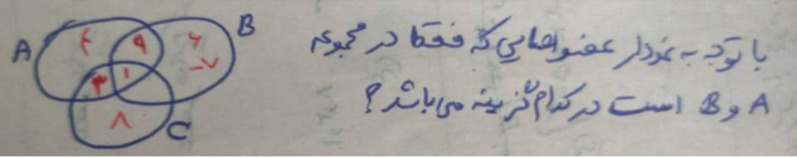 با توجه به نمودار عضوهایی که فقط در مجموعه
A و B است در کدام گزینه می باشد؟
A
B
۴
۹
۶
-۷
۳
۱
۸
C